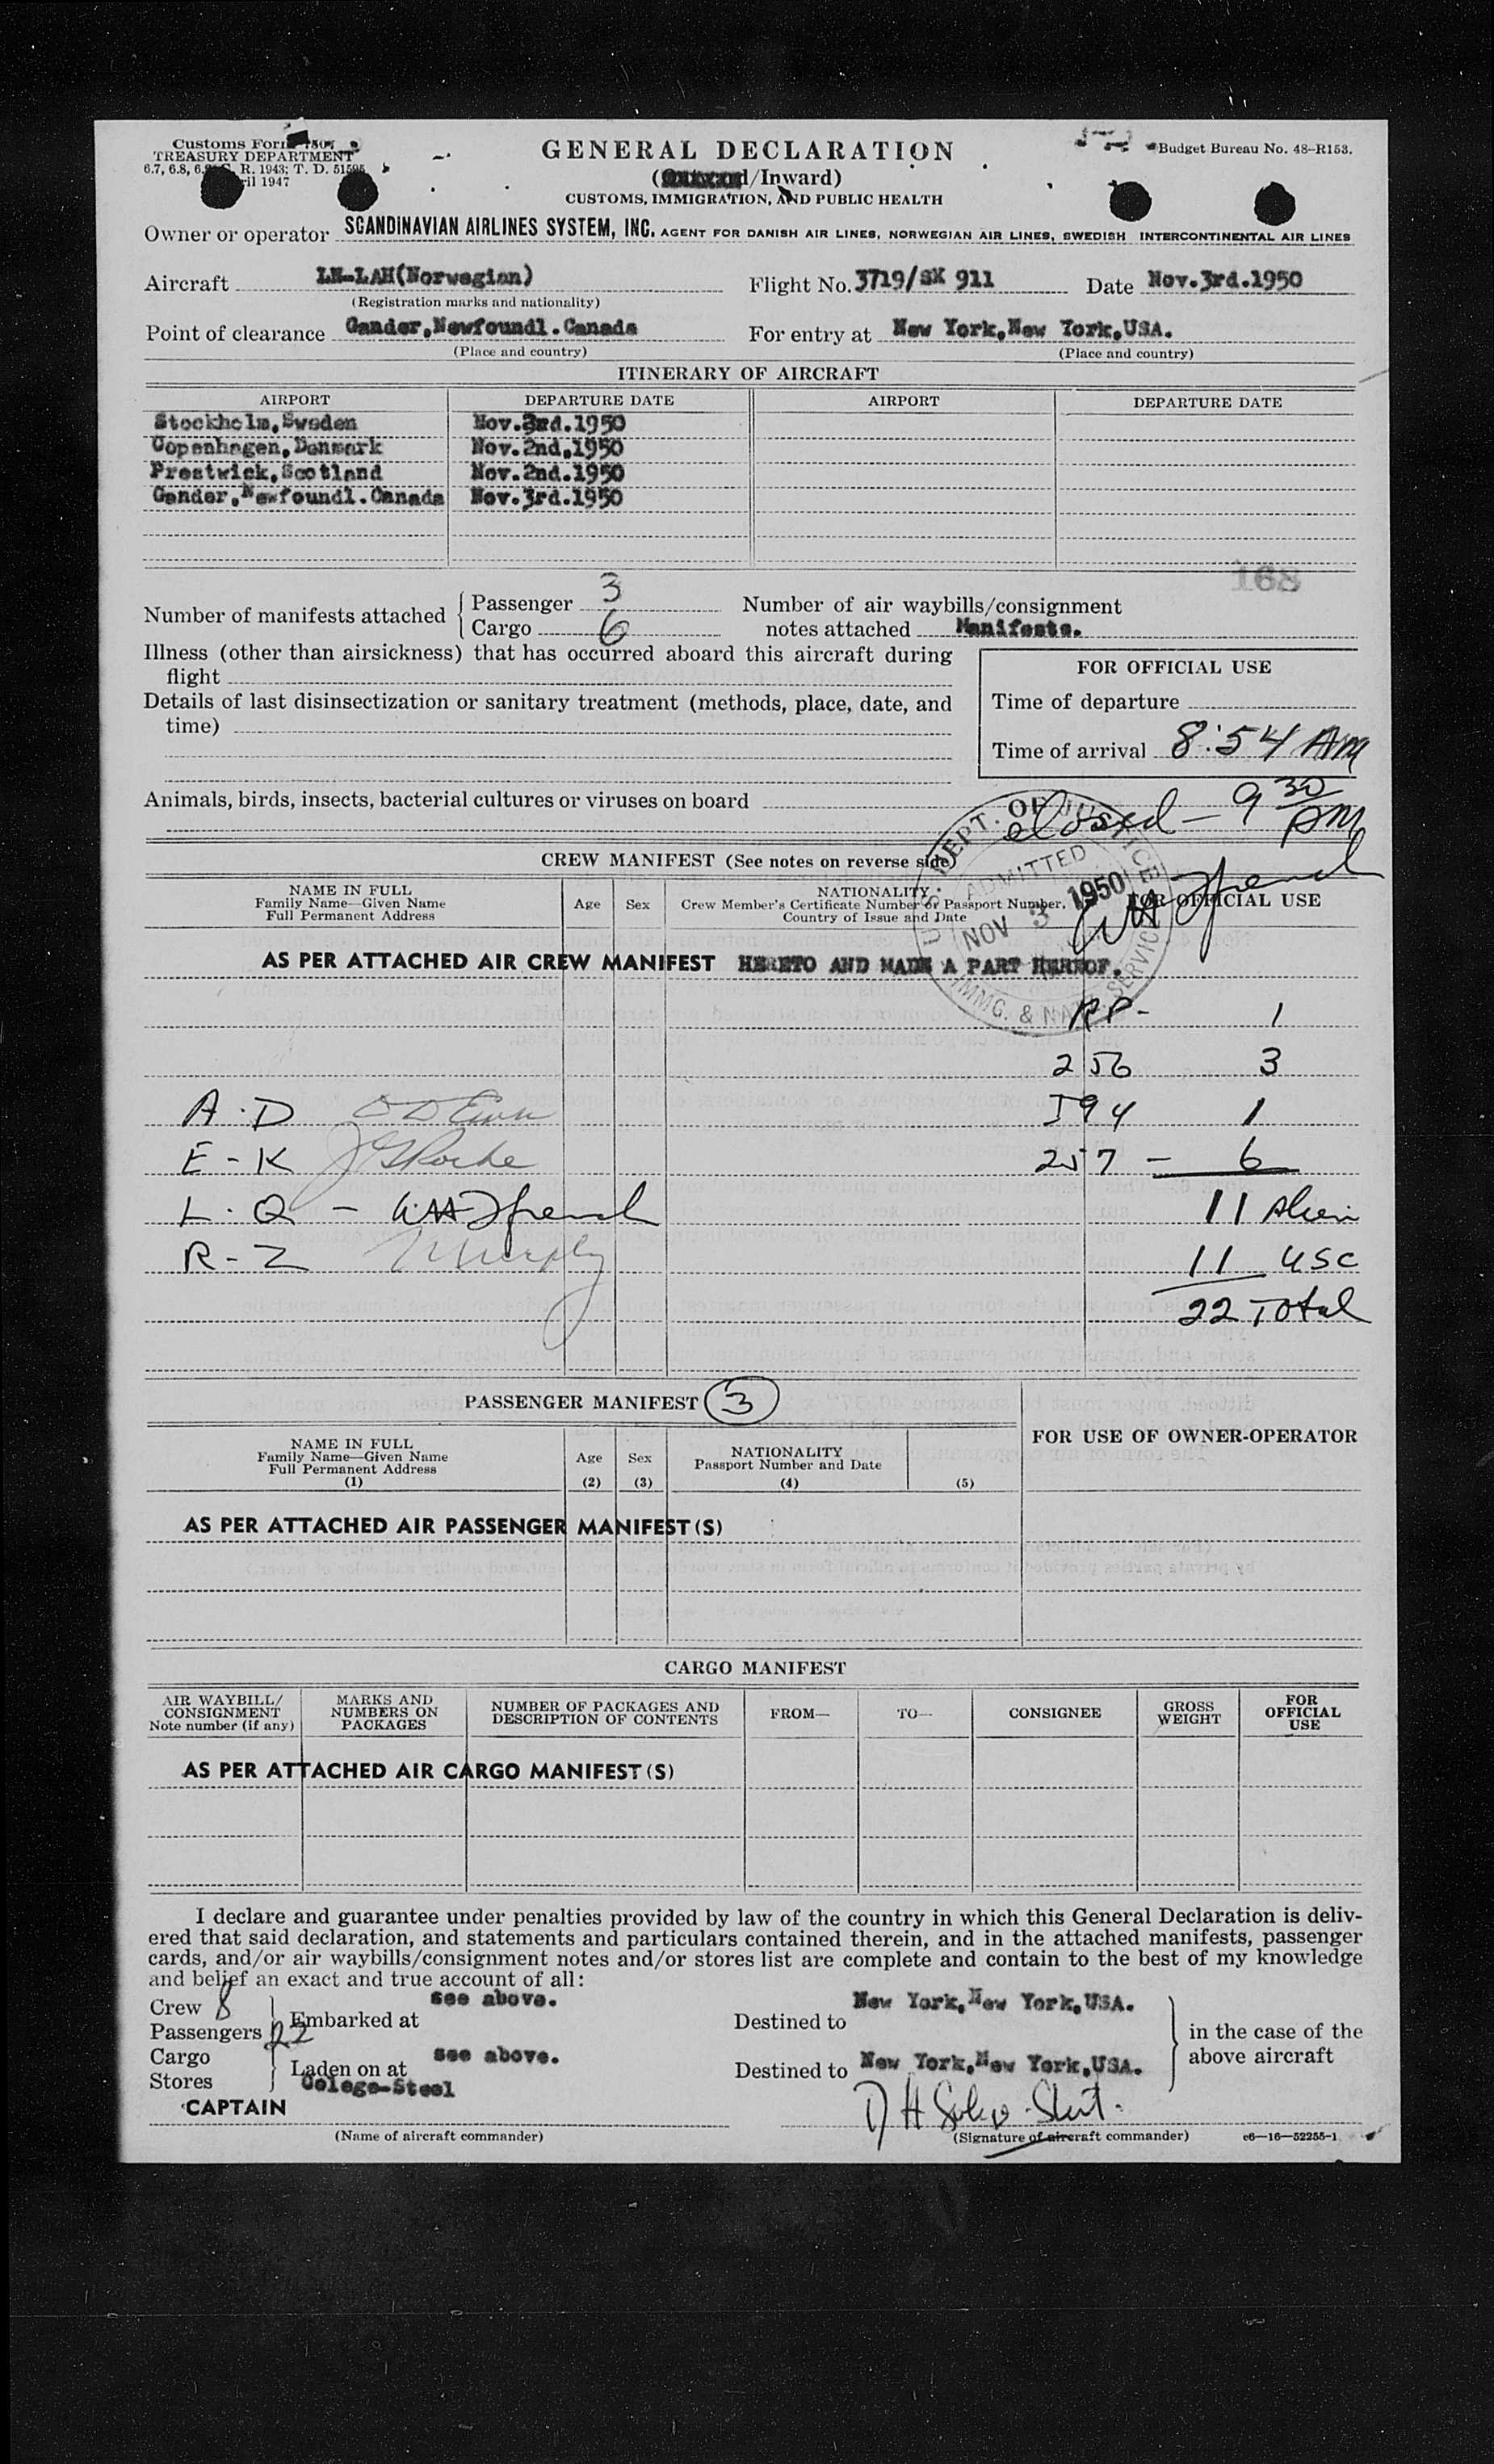 Customs Form 7507
TREASURY DEPARTMENT
6.7, 6.8, R. 1943; T. D. 51595
April 1947
GENERAL DECLARATION
/Inward)
CUSTOMS, IMMIGRATION, AND PUBLIC HEALTH
Budget Bureau No. 48-R153.
Owner or operator SCANDINAVIAN AIRLINES SYSTEM, INC. AGENT FOR DANISH AIR LINES, NORWEGIAN AIR LINES, SWEDISH INTERCONTINENTAL AIR LINES
Aircraft LN-LAH(Norwegian) Flight No. 3719/SK 911 Date Nov.3rd.1950
(Registration marks and nationality)
Point of clearance Gander,Newfoundl.Canada For entry at New York,New York,USA.
(Place and country) (Place and country)
ITINERARY OF AIRCRAFT
AIRPORT DEPARTURE DATE AIRPORT DEPARTURE DATE
Stockholm,Sweden Nov.2nd.1950
Copenhagen,Denmark Nov.2nd,1950
Prestwick,Scotland Nov.2nd.1950
Gander,Newfoundl.Canada Nov.3rd.1950
168
Number of manifests attached Passenger 3 Number of air waybills/consignment
Cargo 6 notes attached Manifests.
Illness (other than airsickness) that has occurred aboard this aircraft during
flight
FOR OFFICIAL USE
Details of last disinsectization or sanitary treatment (methods, place, date, and
time)
Time of departure
Time of arrival 8:54 AM
Animals, birds, insects, bacterial cultures or viruses on board
closed - 9 30 PM
U. S. DEPT. OF JUSTICE
ADMITTED
NOV 3 1950
IMMG. & NATZ. SERVICE
CREW MANIFEST (See notes on reverse side)
NAME IN FULL
Family Name—Given Name
Full Permanent Address
Age Sex
NATIONALITY
Crew Member's Certificate Number or Passport Number,
Country of Issue and Date
FOR OFFICIAL USE
AS PER ATTACHED AIR CREW MANIFEST HERETO AND MADE A PART HEREOF.
RP- 1
256 3
A - D 594 1
E - K JG Roche 257 - 6
L - Q - French 11 Alien
R - Z Murphy 11 USC
22 Total
PASSENGER MANIFEST 3
FOR USE OF OWNER-OPERATOR
NAME IN FULL
Family Name—Given Name
Full Permanent Address
(1)
Age
(2)
Sex
(3)
NATIONALITY
Passport Number and Date
(4)
(5)
AS PER ATTACHED AIR PASSENGER MANIFEST(S)
CARGO MANIFEST
AIR WAYBILL/
CONSIGNMENT
Note number (if any)
MARKS AND
NUMBERS ON
PACKAGES
NUMBER OF PACKAGES AND
DESCRIPTION OF CONTENTS
FROM—
TO—
CONSIGNEE
GROSS
WEIGHT
FOR
OFFICIAL
USE
AS PER ATTACHED AIR CARGO MANIFEST(S)
I declare and guarantee under penalties provided by law of the country in which this General Declaration is deliv-
ered that said declaration, and statements and particulars contained therein, and in the attached manifests, passenger
cards, and/or air waybills/consignment notes and/or stores list are complete and contain to the best of my knowledge
and belief an exact and true account of all:
Crew 8 see above. New York,New York,USA.
Passengers 22 Embarked at Destined to
Cargo see above. New York,New York,USA.
Stores Laden on at Destined to
in the case of the
above aircraft
Colego-Steel
CAPTAIN
(Name of aircraft commander) (Signature of aircraft commander) c6—16—52255-1